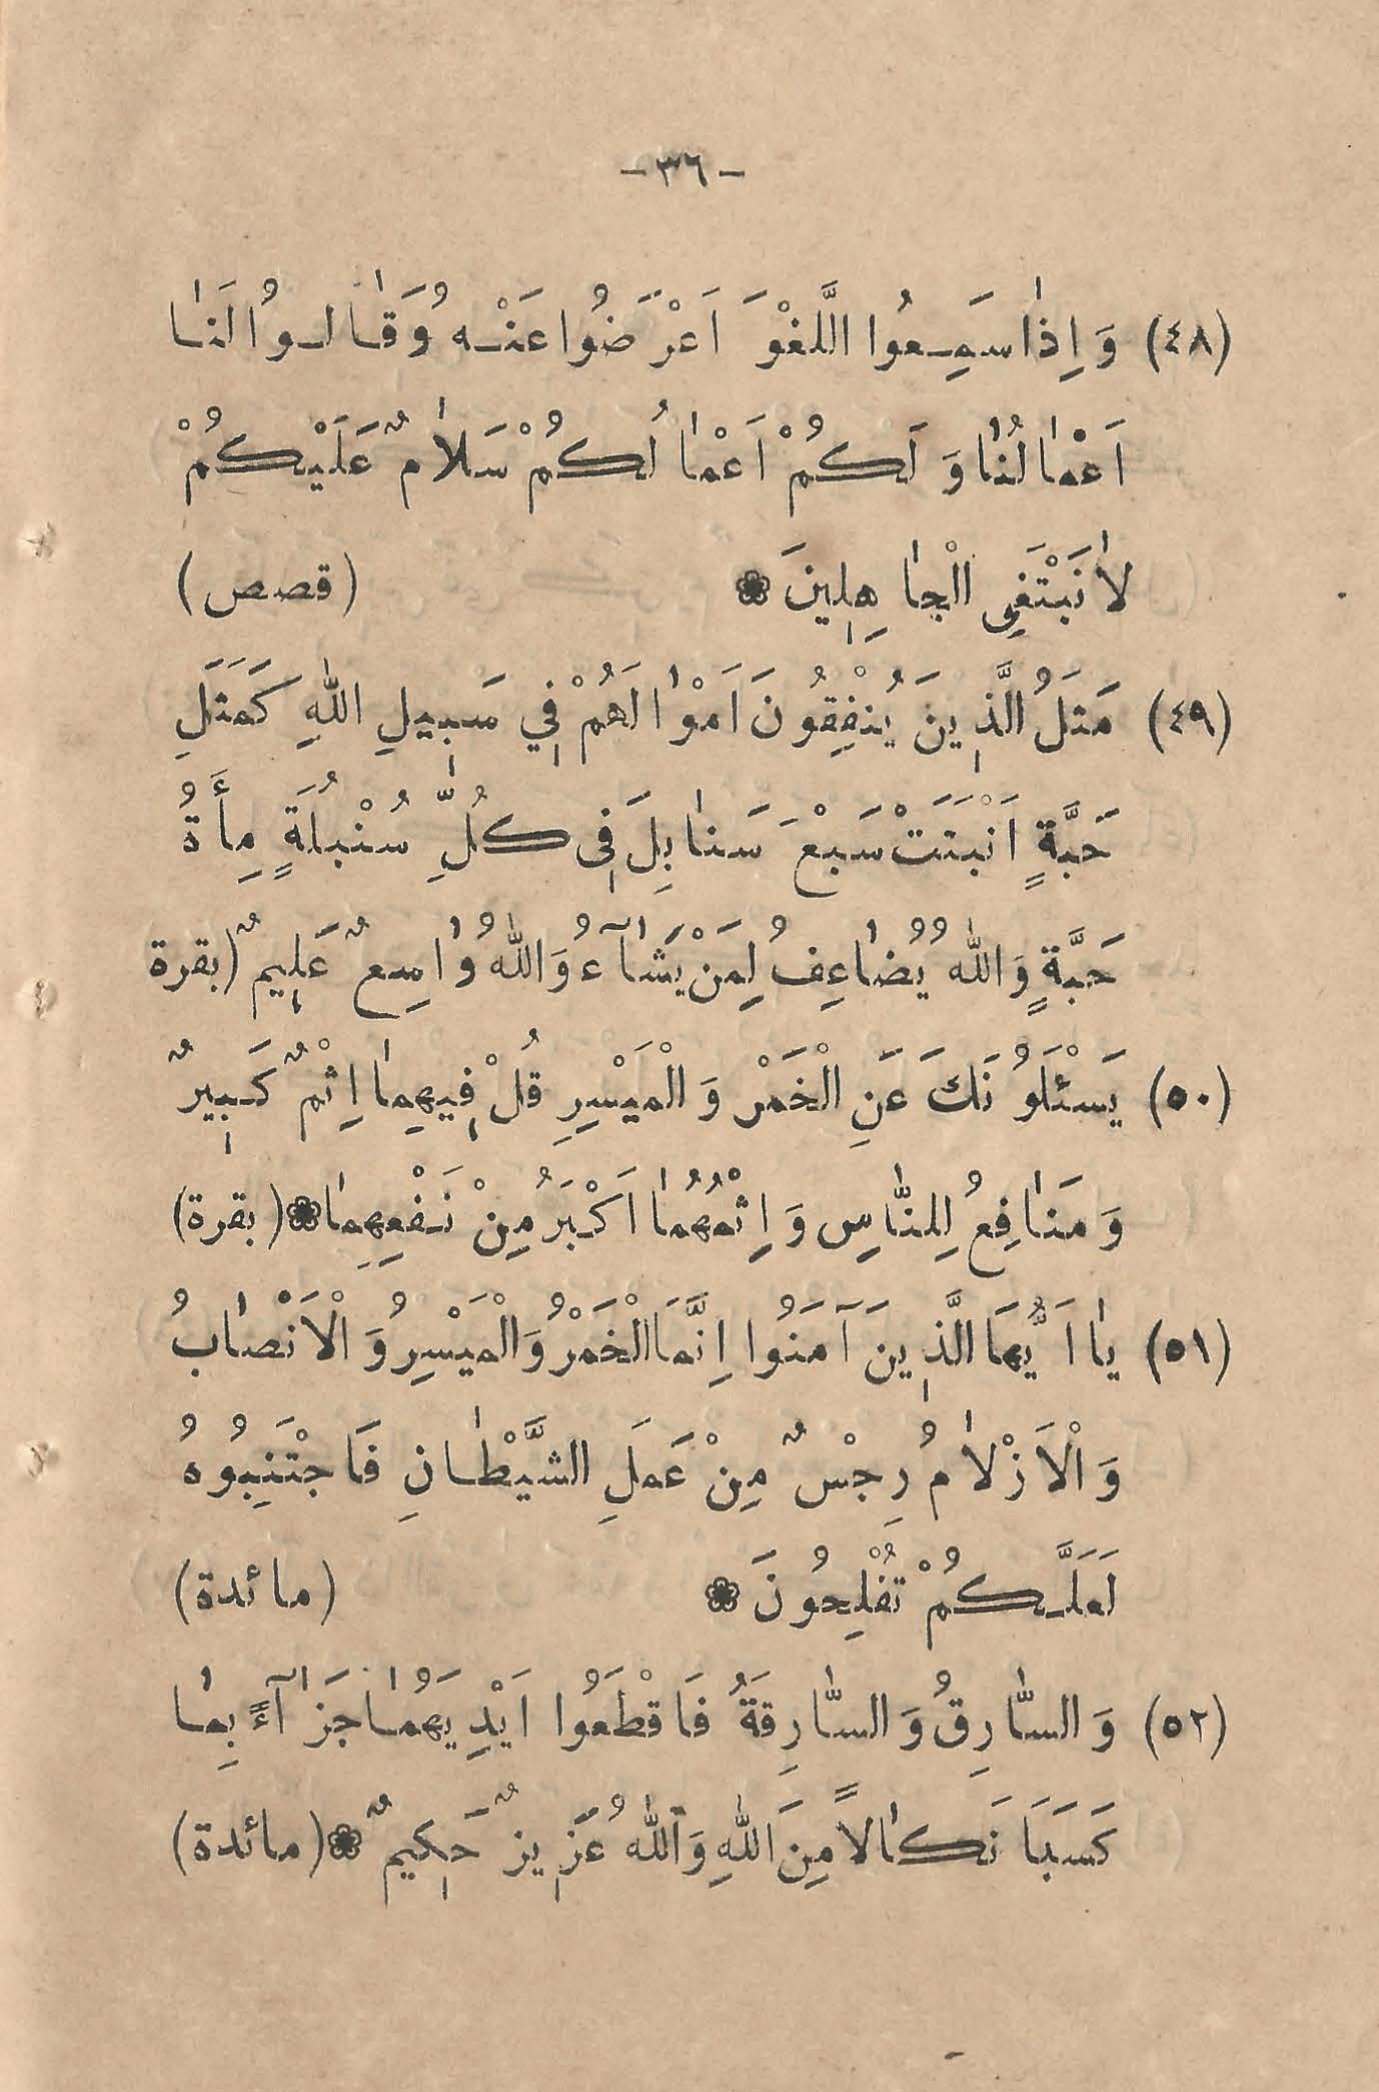 -٣٦-
(٤٨) وَ اِذٰا سَمِـعُوا اللَّغْوَ اَعْرَضُوا عَنْـهُ وَقٰـالـُوا لَنٰـا
اَعْمٰالُنٰا وَ لَكُمْ اَعْمٰا لُكُمْ سَلاٰمٌ عَلَيْكُمْ
لاٰنَبْتَغِى الْجٰا هِلٖينَ ❁ (قصص)
(٤٩) مَثَلُ الَّذٖينَ يُنْفِقُونَ اَمْوٰا لَهُمْ فٖي سَبٖيلِ اللّٰهِ كَمَثَلِ
حَبَّةٍ اَنْبَتَتْ سَبْعَ سَنٰا بِلَ فٖى كُلِّ سُنْبُلَةٍ مِأَةُ
حَبَّةٍ وَاللّٰهُ يُضٰاعِفُ لِمَنْ يَشٰآءُ وَاللّٰهُ وٰاسِعٌ عَلٖيمٌ (بقرة
(٥٠) يَسْئَلُو نَكَ عَنِ الْخَمْرِ وَ الْمَيْسِرِ قُلْ فٖيهِمٰا اِثْمٌ كَـبٖيرٌ
وَ مَنٰافِعُ لِلنّٰاسِ وَ اِثْمُهُمٰا اَكْبَرُ مِنْ نَـفْعِهِمٰا ❁ (بقرة)
(٥١) يٰا اَ يُّهَا الَّذٖينَ آمَنُوا اِنَّمَا الْخَمْرُ وَالْمَيْسِرُ وَ الْاَنْصٰابُ
وَ الْاَزْلاٰمُ رِجْسٌ مِنْ عَمَلِ الشَّيْطٰـانِ فَا جْتَنِبُوهُ
لَعَلَّـكُمْ تُفْلِحُونَ ❁ (مائدة)
(٥٢) وَ السّٰارِقُ وَ السّٰارِقَةُ فَا قْطَعُوا اَيْدِ يَهُمٰـا جَزٰآءً بِمٰـا
كَسَبَا نَكٰالاً مِنَ اللّٰهِ وَ اللّٰهُ عَزٖيزٌ حَكٖيمٌ ❁ (مائدة)